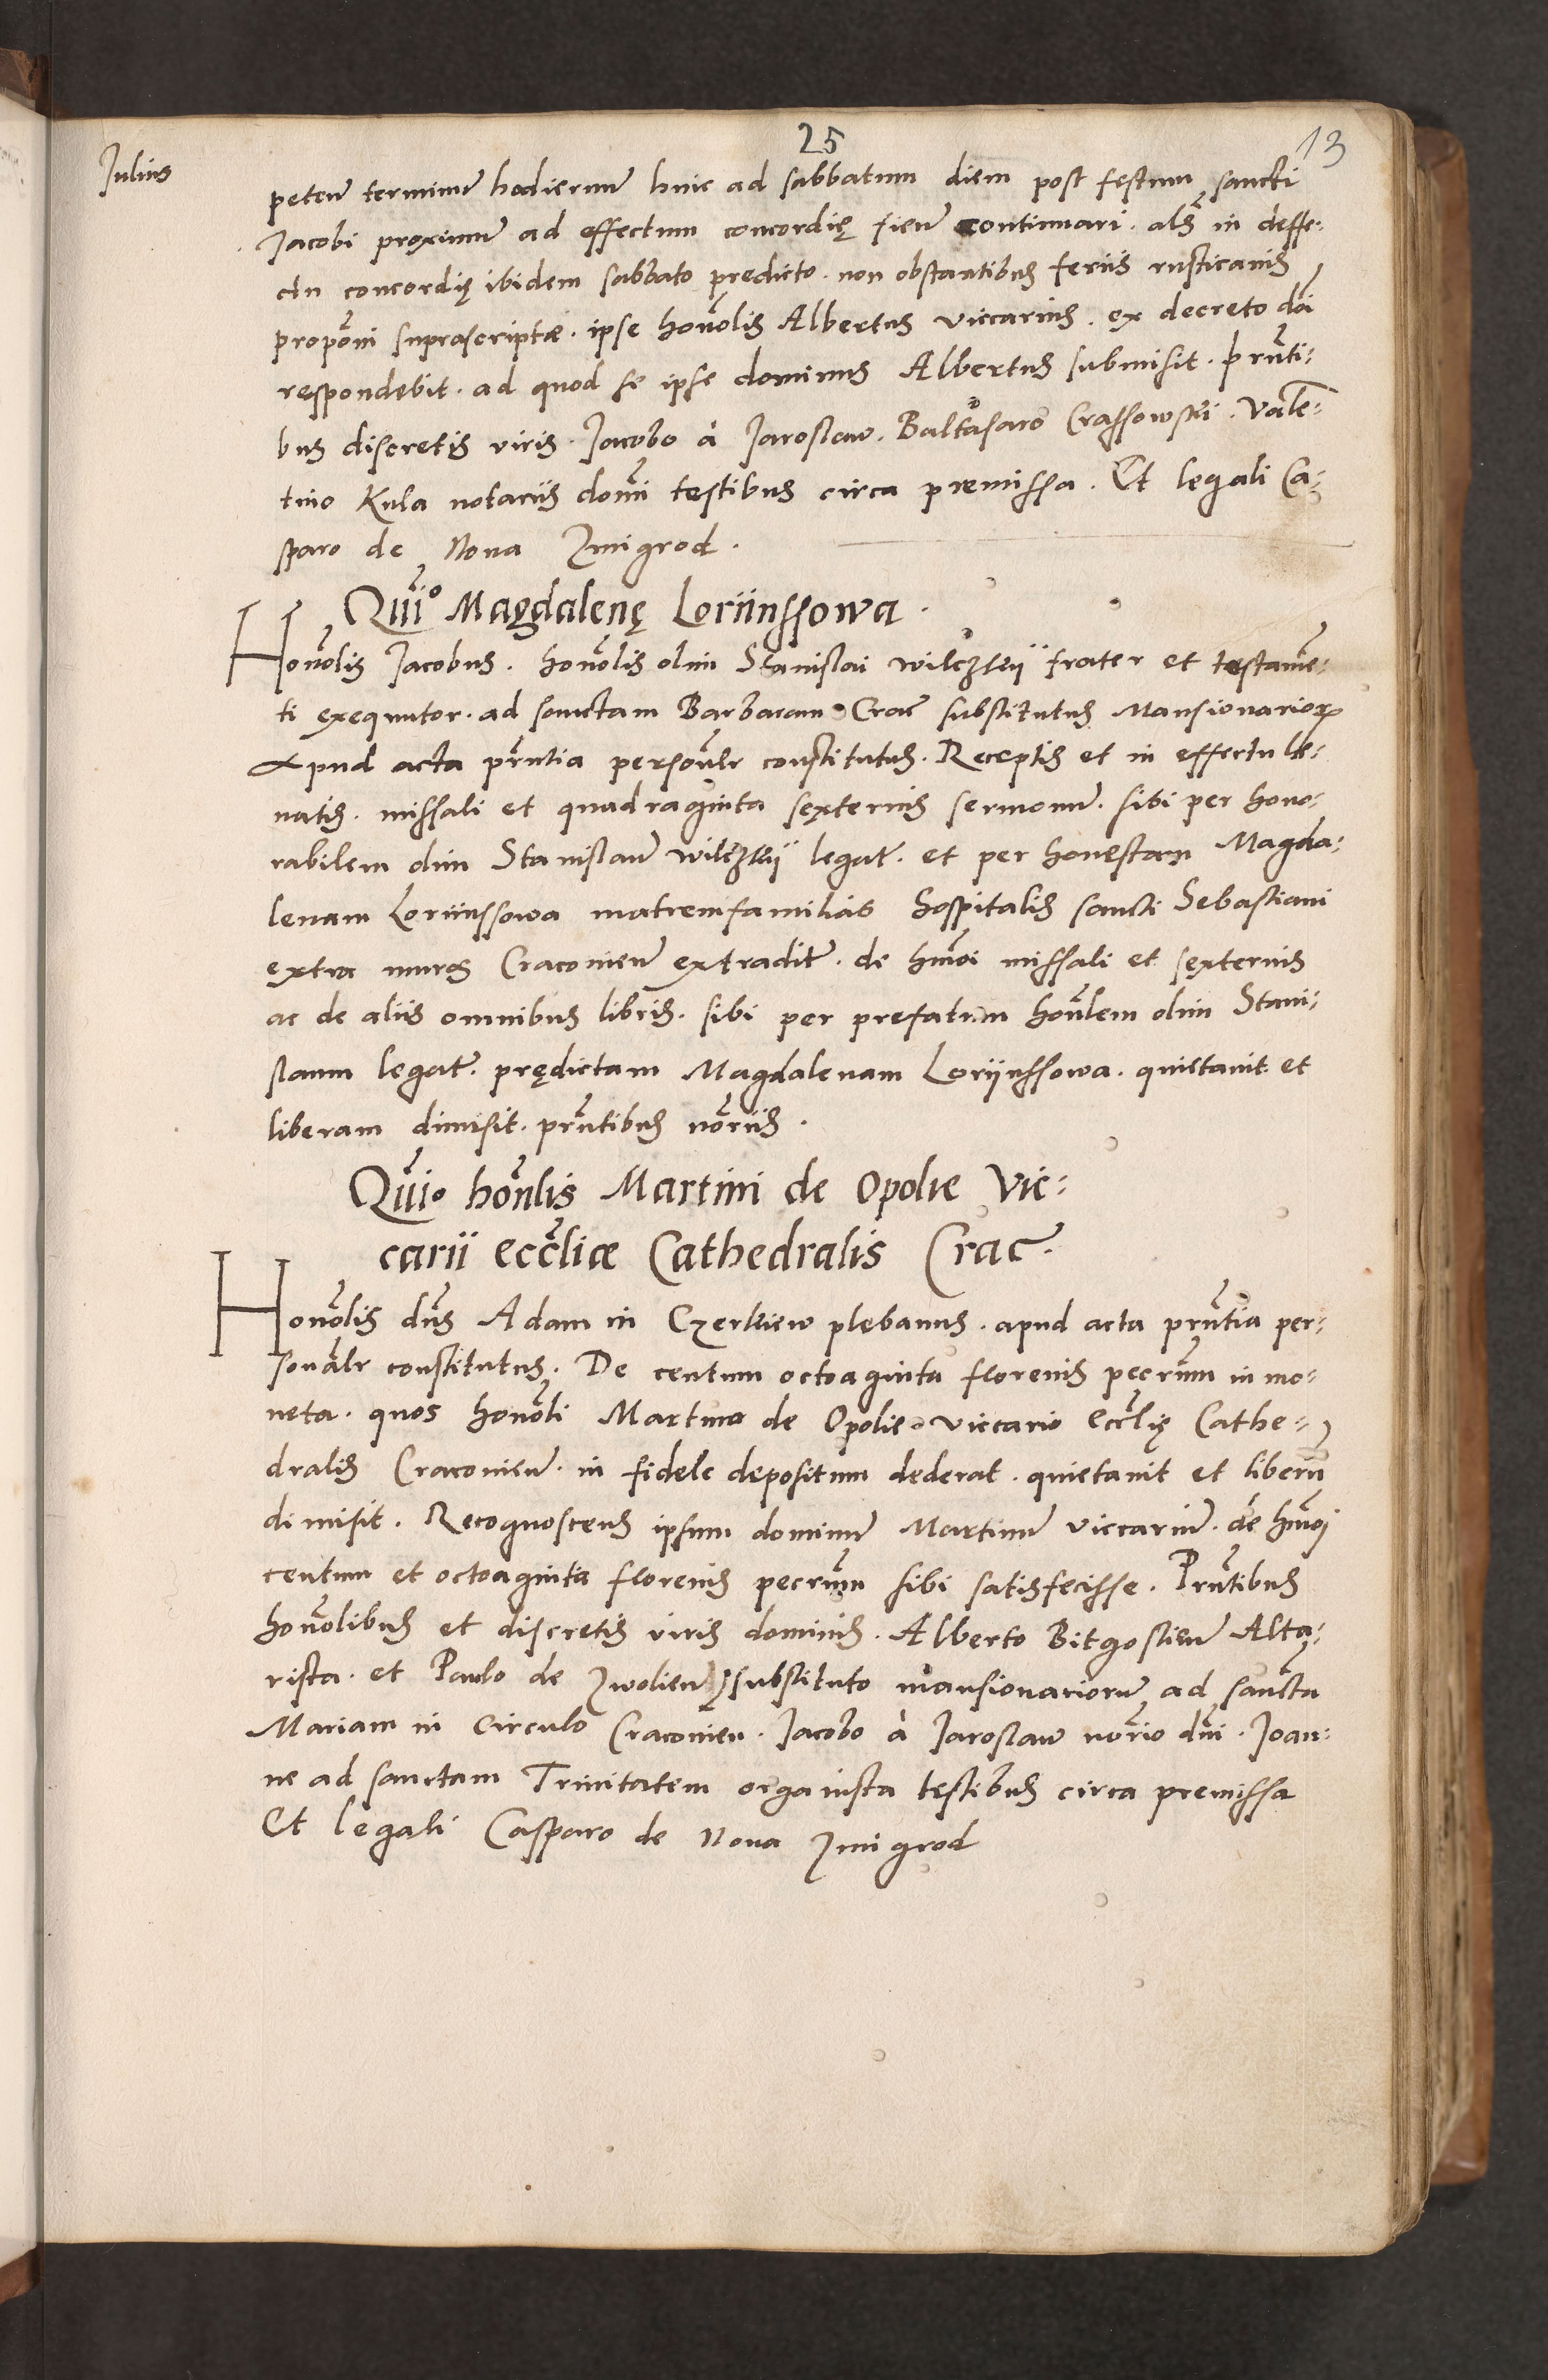 25
13
Julius
peteñ terminũ hodiernũ hinc ad sabbatum diem post festum sancti
Jacobi proximũ ad effectum concordię fieñ continuari. als̃ in deffe:
ctu concordię ibidem sabbato predicto. non obstantibus feriis rusticanis
propõni suprascriptæ. ipse honõlis Albertus viccarius. ex decreto dñi
respondebit. ad quod se ipse dominus Albertus submisit. prñti:
bus discretis viris. Jacobo à Jaroslaw. Baltasaro Crassowski. Valẽ:
tino Kula notariis domĩni testibus circa premissa. Et legali Ca:
sparo de Nova Zmigrod.
Quĩo Magdalenę Loriinssowa.
Honõlis Jacobus. honõlis olim Stanislai Wilczkÿ frater et testamẽ:
ti exequutor. ad sanctam Barbaram Crac̃ substitutus Mansionariorꝝ
Apud acta prñtia personãlr constitutus. Receptis et in effectu le:
vatis. missali et quadraginta sexternis sermonũ. sibi per hono:
rabilem olim Stanislaũ Wilczkÿ legat̃. et per honestam Magda:
lenam Loriinssowa matremfamilias Hospitalis sancti Sebastiani
extra muros Cracovieñ extradit̃. de hmõi missali et sexternis
ac de aliis omnibus libris. sibi per prefatum honãlem olim Stani:
slaum legat̃. prędictam Magdalenam Lorÿnssowa. quictavit et
liberam dimisit. prñtibus nõriis.
Quĩo honãlis Martini de Opolie Vic:
carii eccl̃iæ Cathedralis Crac̃.
Honõlis dñs Adam in Czerkiew plebanus. apud acta prñtia per:
sonãlr constitutus. De centum octoaginta florenis pecrũm in mo:
neta. quos honõli Martino de Opolie viccario Eccl̃ię Cathe:
dralis Cracovieñ. in fidele depositum dederat. quietavit et liberũ
dimisit. Recognoscens ipsum dominũ Martinũ viccariũ. de hmõi
centum et octoaginta florenis pecrũm sibi satisfecisse. Prñtibus
honõlibus et discretis viris dominis. Alberto Bitgostieñ Alta:
rista. et Paulo de Zwolieñ substituto mansionariorũ ad sanctã
Mariam in Circulo Cracovieñ. Jacobo à Jaroslaw nõrio dñi. Joan:
ne ad sanctam Trinitatem organista testibus circa premissa
Et legali Casparo de Nova Zmigrod